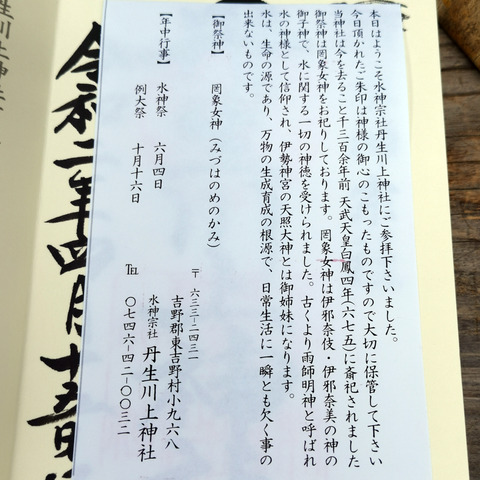 本日はようこそ水神宗社丹生川上神社にご参拝下さいました。
今日頂かれたご朱印は神様の御心のこもったものですので大切に保管して下さい
当神社は今を去ること千三百余年前 天武天皇白鳳四年(六七五)に斎祀されました
御祭神は罔象女神をお祀りしております。罔象女神は伊邪奈伎・伊邪奈美の神の
御子神で、水に関する一切の神徳を受けられました。古くより雨師明神と呼ばれ
水の神様として信仰され、伊勢神宮の天照大神とは御姉妹になります。
水は、生命の源であり、万物の生成育成の根源で、日常生活に一瞬とも欠く事の
出来ないものです。
【御祭神】 罔象女神(みづはのめのかみ)
【年中行事】 水神祭 六月四日
例大祭 十月十六日
〒六三三-二四三一
吉野郡東吉野村小九六八
水神宗社 丹生川上神社
℡ 〇七四六-四二-〇〇三二
令和二年四月十五日
生川上神社